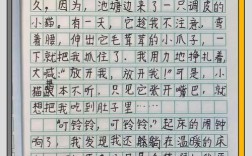 久。因为，池塘边来了一只调皮的
小猫。有一天，它趁我不注意，黄
着腰，伸出它毛茸茸的小爪子，一
下就把我抓住了。我用力地挣扎着
大喊："放开我，放开我!"可是，小
猫根本不听，只见它张开嘴巴，就
想把我吃到肚子里……
"叮铃铃，叮铃铃。"起床的闹钟
响了，我发现我还躺在温暖的床